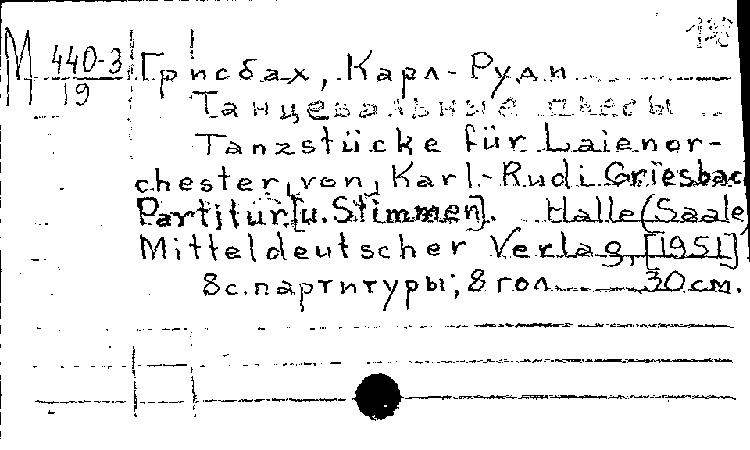 М 440-3
19
Грисбах, Карл-Руди
Танцевальные пьесы
Tanzstücke für Laienor-
chester, von, Karl-Rudi Griesbac
Partitur [u. Stimmen]. Halle (Saale)
Mitteldeutscher Verlag, [1951]
8 с. партитуры; 8 гол. 30 см.